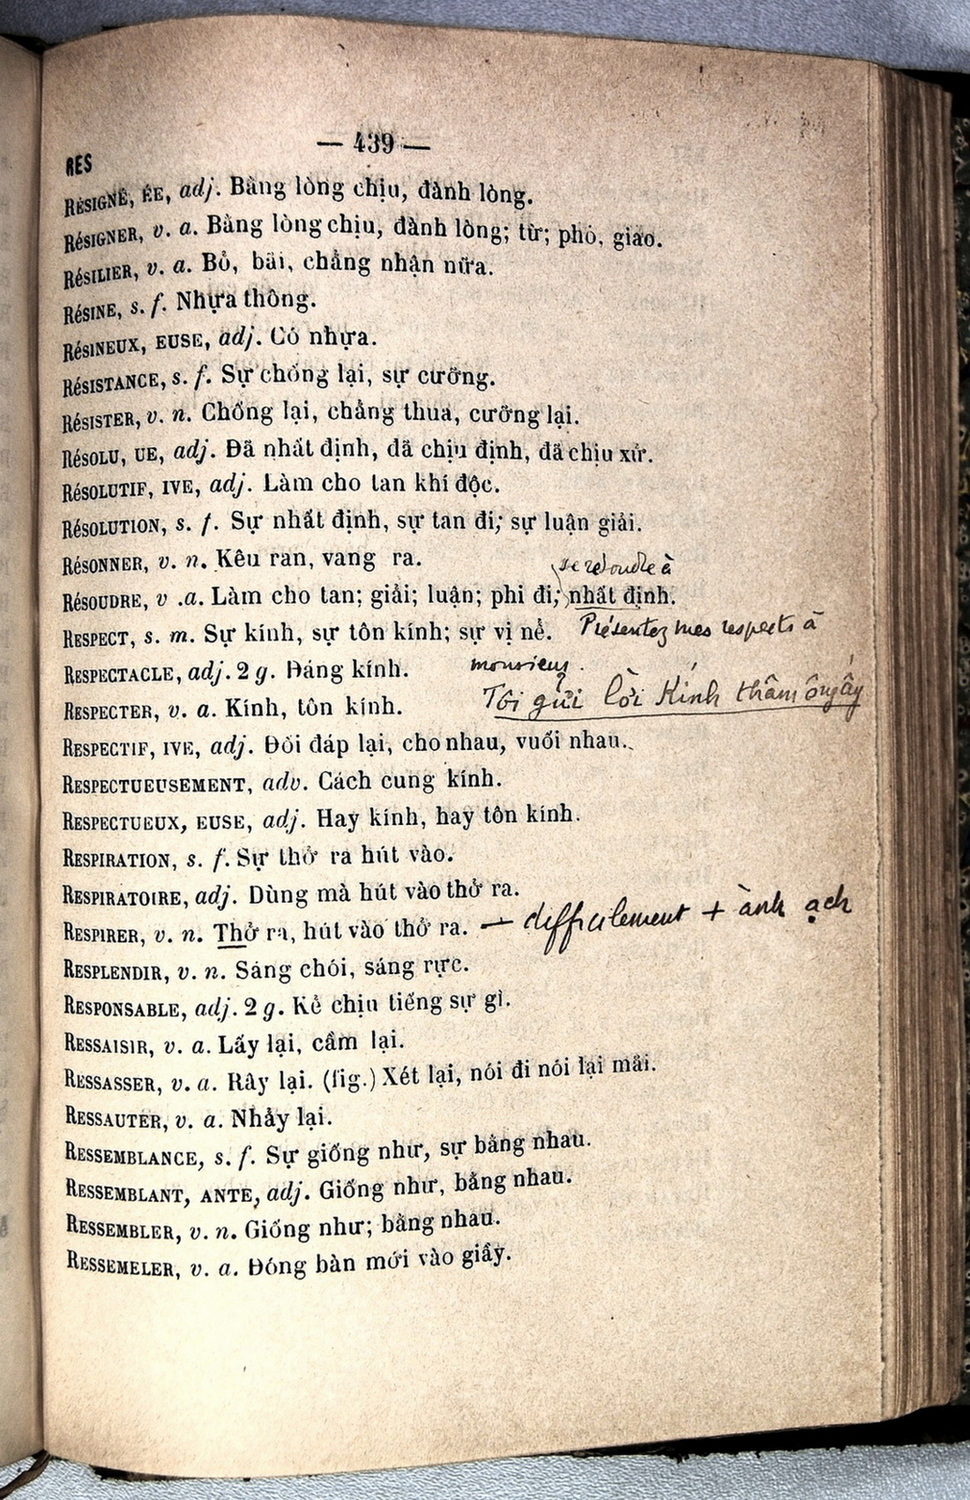 — 439 —
RES
RÉSIGNÉ, ÉE, adj. Bằng lòng chịu, đành lòng.
RÉSIGNER, v. a. Bằng lòng chịu, đành lòng; từ; phó, giao.
RÉSILIER, v. a. Bỏ, bãi, chẳng nhận nữa.
RÉSINE, s. f. Nhựa thông.
RÉSINEUX, EUSE, adj. Có nhựa.
RÉSISTANCE, s. f. Sự chống lại, sự cưỡng.
RÉSISTER, v. n. Chống lại, chẳng thua, cưỡng lại.
RÉSOLU, UE, adj. Đã nhất định, đã chịu định, đã chịu xử.
RÉSOLUTIF, IVE, adj. Làm cho tan khí độc.
RÉSOLUTION, s. f. Sự nhất định, sự tan đi; sự luận giải.
RÉSONNER, v. n. Kêu ran, vang ra.
se résoudre à
RÉSOUDRE, v .a. Làm cho tan; giải; luận; phi đi; nhất định.
RESPECT, s. m. Sự kính, sự tôn kính; sự vị nể. Présentez mes respects à
monsieur.
RESPECTACLE, adj. 2 g. Đáng kính.
Tôi gửi lời Kính thăm ông ấy
RESPECTER, v. a. Kính, tôn kính.
RESPECTIF, IVE, adj. Đối đáp lại, cho nhau, vuối nhau.
RESPECTUEUSEMENT, adv. Cách cung kính.
RESPECTUEUX, EUSE, adj. Hay kính, hay tôn kính.
RESPIRATION, s. f. Sự thở ra hút vào.
RESPIRATOIRE, adj. Dùng mà hút vào thở ra.
RESPIRER, v. n. Thở ra, hút vào thở ra. — difficilement + ành ạch
RESPLENDIR, v. n. Sáng chói, sáng rực.
RESPONSABLE, adj. 2 g. Kẻ chịu tiếng sự gì.
RESSAISIR, v. a. Lấy lại, cầm lại.
RESSASSER, v. a. Rây lại. (fig.) Xét lại, nói đi nói lại mãi.
RESSAUTER, v. a. Nhảy lại.
RESSEMBLANCE, s. f. Sự giống như, sự bằng nhau.
RESSEMBLANT, ANTE, adj. Giống như, bằng nhau.
RESSEMBLER, v. n. Giống như; bằng nhau.
RESSEMELER, v. a. Đóng bàn mới vào giầy.